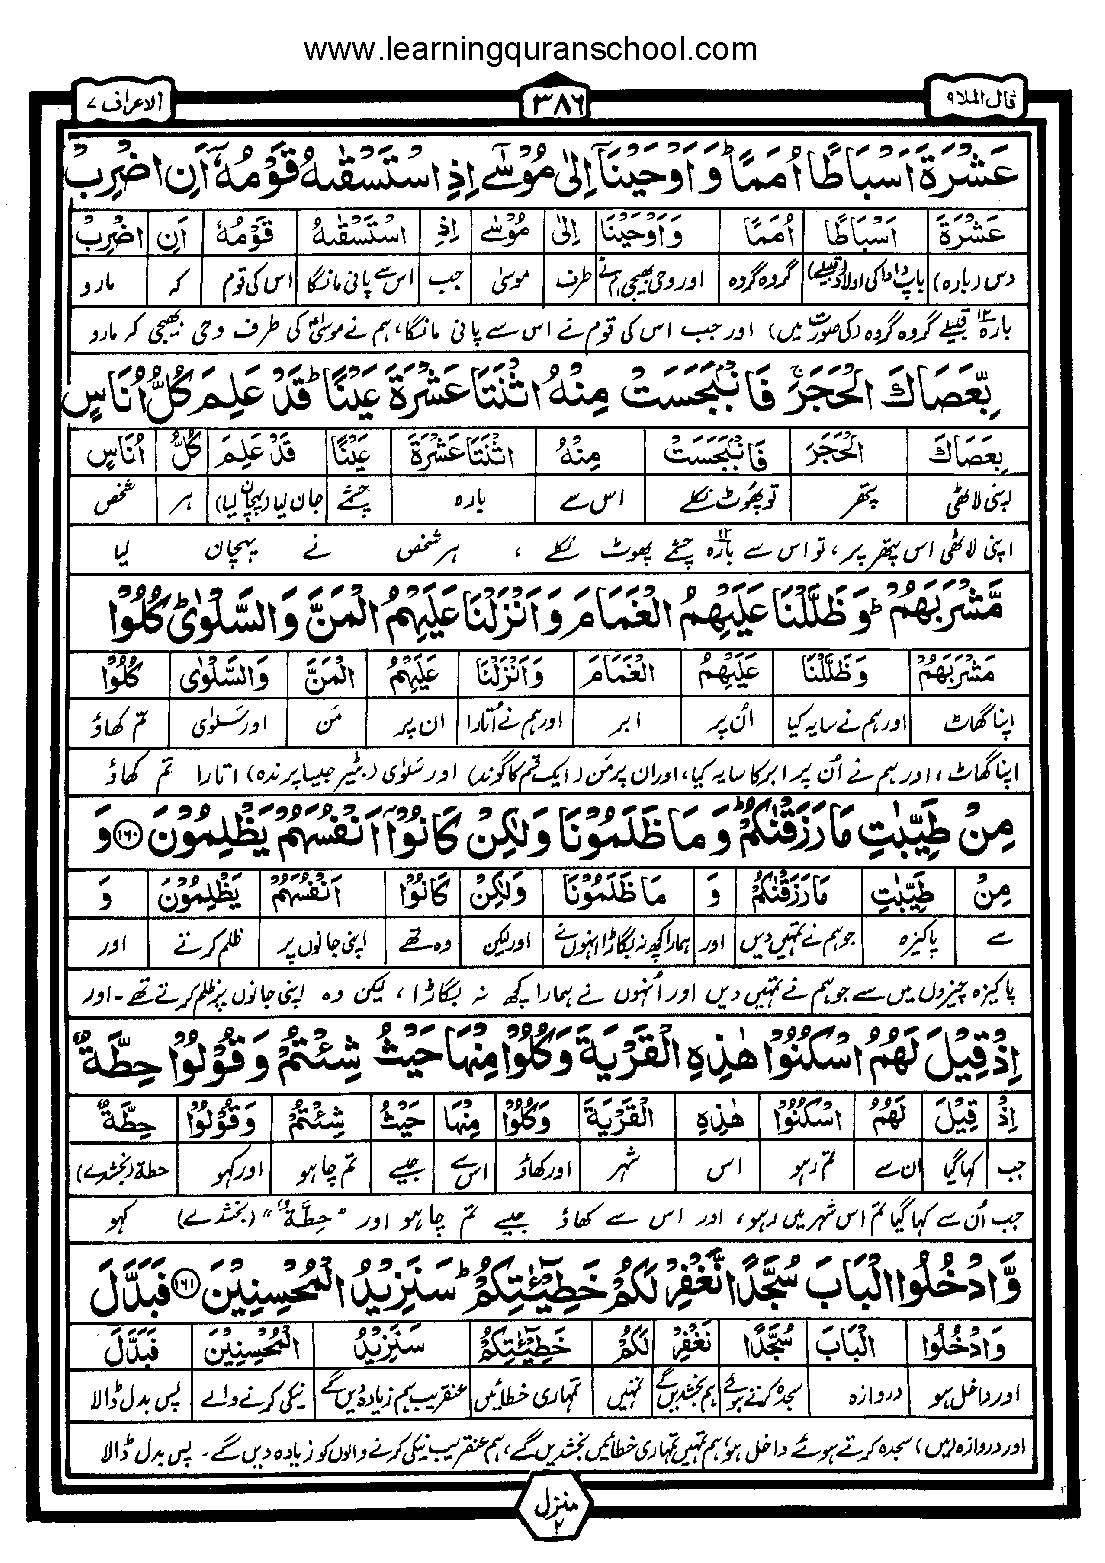 www.learningquranschool.com
قال الملا ۹
۳۸۶
الاعراف ۷
عَشْرَةَ اَسْبَاطًا اُمَمًا ؕ وَ اَوْحَیْنَاۤ اِلٰی مُوْسٰۤی اِذِ اسْتَسْقٰىهُ قَوْمُهٗۤ اَنِ اضْرِبْ
عَشْرَةَ اَسْبَاطًا اُمَمًا وَ اَوْحَیْنَا اِلٰی مُوْسٰی اِذِ اسْتَسْقٰىهُ قَوْمُهٗ اَنِ اضْرِبْ
دس (بارہ) باپ دادا کی اولاد (قبیلے) گروہ گروہ اور وحی بھیجی ہم نے طرف موسیٰ جب اس سے پانی مانگا اس کی قوم کہ مارو
بارہ قبیلے گروہ گروہ (کی صورت میں) اور جب اس کی قوم نے اس سے پانی مانگا، ہم نے موسیٰؑ کی طرف وحی بھیجی کہ مارو
بِّعَصَاكَ الْحَجَرَ ۚ فَانْۢبَجَسَتْ مِنْهُ اثْنَتَا عَشْرَةَ عَیْنًا ؕ قَدْ عَلِمَ كُلُّ اُنَاسٍ
بِعَصَاكَ الْحَجَرَ فَانْۢبَجَسَتْ مِنْهُ اثْنَتَا عَشْرَةَ عَیْنًا قَدْ عَلِمَ كُلُّ اُنَاسٍ
اپنی لاٹھی پتھر تو پھوٹ نکلے اس سے بارہ چشمے جان لیا (پہچان لیا) ہر شخص
اپنی لاٹھی اس پتھر پر، تو اس سے بارہ چشمے پھوٹ نکلے، ہر شخص نے پہچان لیا
مَّشْرَبَهُمْ ؕ وَ ظَلَّلْنَا عَلَیْهِمُ الْغَمَامَ وَ اَنْزَلْنَا عَلَیْهِمُ الْمَنَّ وَ السَّلْوٰی ؕ كُلُوْا
مَشْرَبَهُمْ وَ ظَلَّلْنَا عَلَیْهِمُ الْغَمَامَ وَ اَنْزَلْنَا عَلَیْهِمُ الْمَنَّ وَ السَّلْوٰی كُلُوْا
اپنا گھاٹ اور ہم نے سایہ کیا اُن پر ابر اور ہم نے اُتارا ان پر مَن اور سَلوٰی تم کھاؤ
اپنا گھاٹ، اور ہم نے اُن پر ابر کا سایہ کیا، اور ان پر مَن (ایک قسم کا گوند) اور سَلوٰی (بٹیر جیسا پرندہ) اتارا تم کھاؤ
مِنْ طَیِّبٰتِ مَا رَزَقْنٰكُمْ ؕ وَ مَا ظَلَمُوْنَا وَ لٰكِنْ كَانُوْۤا اَنْفُسَهُمْ یَظْلِمُوْنَ ﴿۱۶۰﴾ وَ
مِنْ طَیِّبٰتِ مَا رَزَقْنٰكُمْ وَ مَا ظَلَمُوْنَا وَ لٰكِنْ كَانُوْۤا اَنْفُسَهُمْ یَظْلِمُوْنَ وَ
سے پاکیزہ جو ہم نے تمہیں دیں اور ہمارا کچھ نہ بگاڑا انہوں نے اور لیکن وہ تھے اپنی جانوں پر ظلم کرتے اور
پاکیزہ چیزوں میں سے جو ہم نے تمہیں دیں اور اُنہوں نے ہمارا کچھ نہ بگاڑا، لیکن وہ اپنی جانوں پر ظلم کرتے تھے۔ اور
اِذْ قِیْلَ لَهُمُ اسْكُنُوْا هٰذِهِ الْقَرْیَةَ وَ كُلُوْا مِنْهَا حَیْثُ شِئْتُمْ وَ قُوْلُوْا حِطَّةٌ
اِذْ قِیْلَ لَهُمُ اسْكُنُوْا هٰذِهِ الْقَرْیَةَ وَ كُلُوْا مِنْهَا حَیْثُ شِئْتُمْ وَ قُوْلُوْا حِطَّةٌ
جب کہا گیا ان سے تم رہو اس شہر اور کھاؤ اس سے جیسے تم چاہو اور کہو حطة (بخشدے)
جب اُن سے کہا گیا تم اس شہر میں رہو، اور اس سے کھاؤ جیسے تم چاہو اور "حِطَّةٌ" (بخشدے) کہو
وَّ ادْخُلُوا الْبَابَ سُجَّدًا نَّغْفِرْ لَكُمْ خَطِیْٓـٰٔتِكُمْ ؕ سَنَزِیْدُ الْمُحْسِنِیْنَ ﴿۱۶۱﴾ فَبَدَّلَ
وَ ادْخُلُوا الْبَابَ سُجَّدًا نَغْفِرْ لَكُمْ خَطِیْٓـٰٔتِكُمْ سَنَزِیْدُ الْمُحْسِنِیْنَ فَبَدَّلَ
اور داخل ہو دروازہ سجدہ کرتے ہوئے ہم بخشدیں گے تمہیں تمہاری خطائیں عنقریب ہم زیادہ دیں گے نیکی کرنے والے پس بدل ڈالا
اور دروازہ (میں) سجدہ کرتے ہوئے داخل ہو، ہم تمہیں تمہاری خطائیں بخشدیں گے، ہم عنقریب نیکی کرنے والوں کو زیادہ دیں گے۔ پس بدل ڈالا
منزل ۲